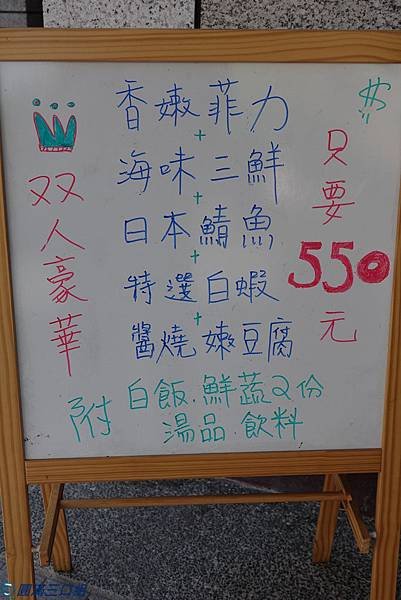 双人豪華
香嫩菲力
+
海味三鮮
+
日本鯖魚
+
特選白蝦
+
醬燒嫩豆腐
只要550元
附 白飯.鮮蔬2份
湯品.飲料